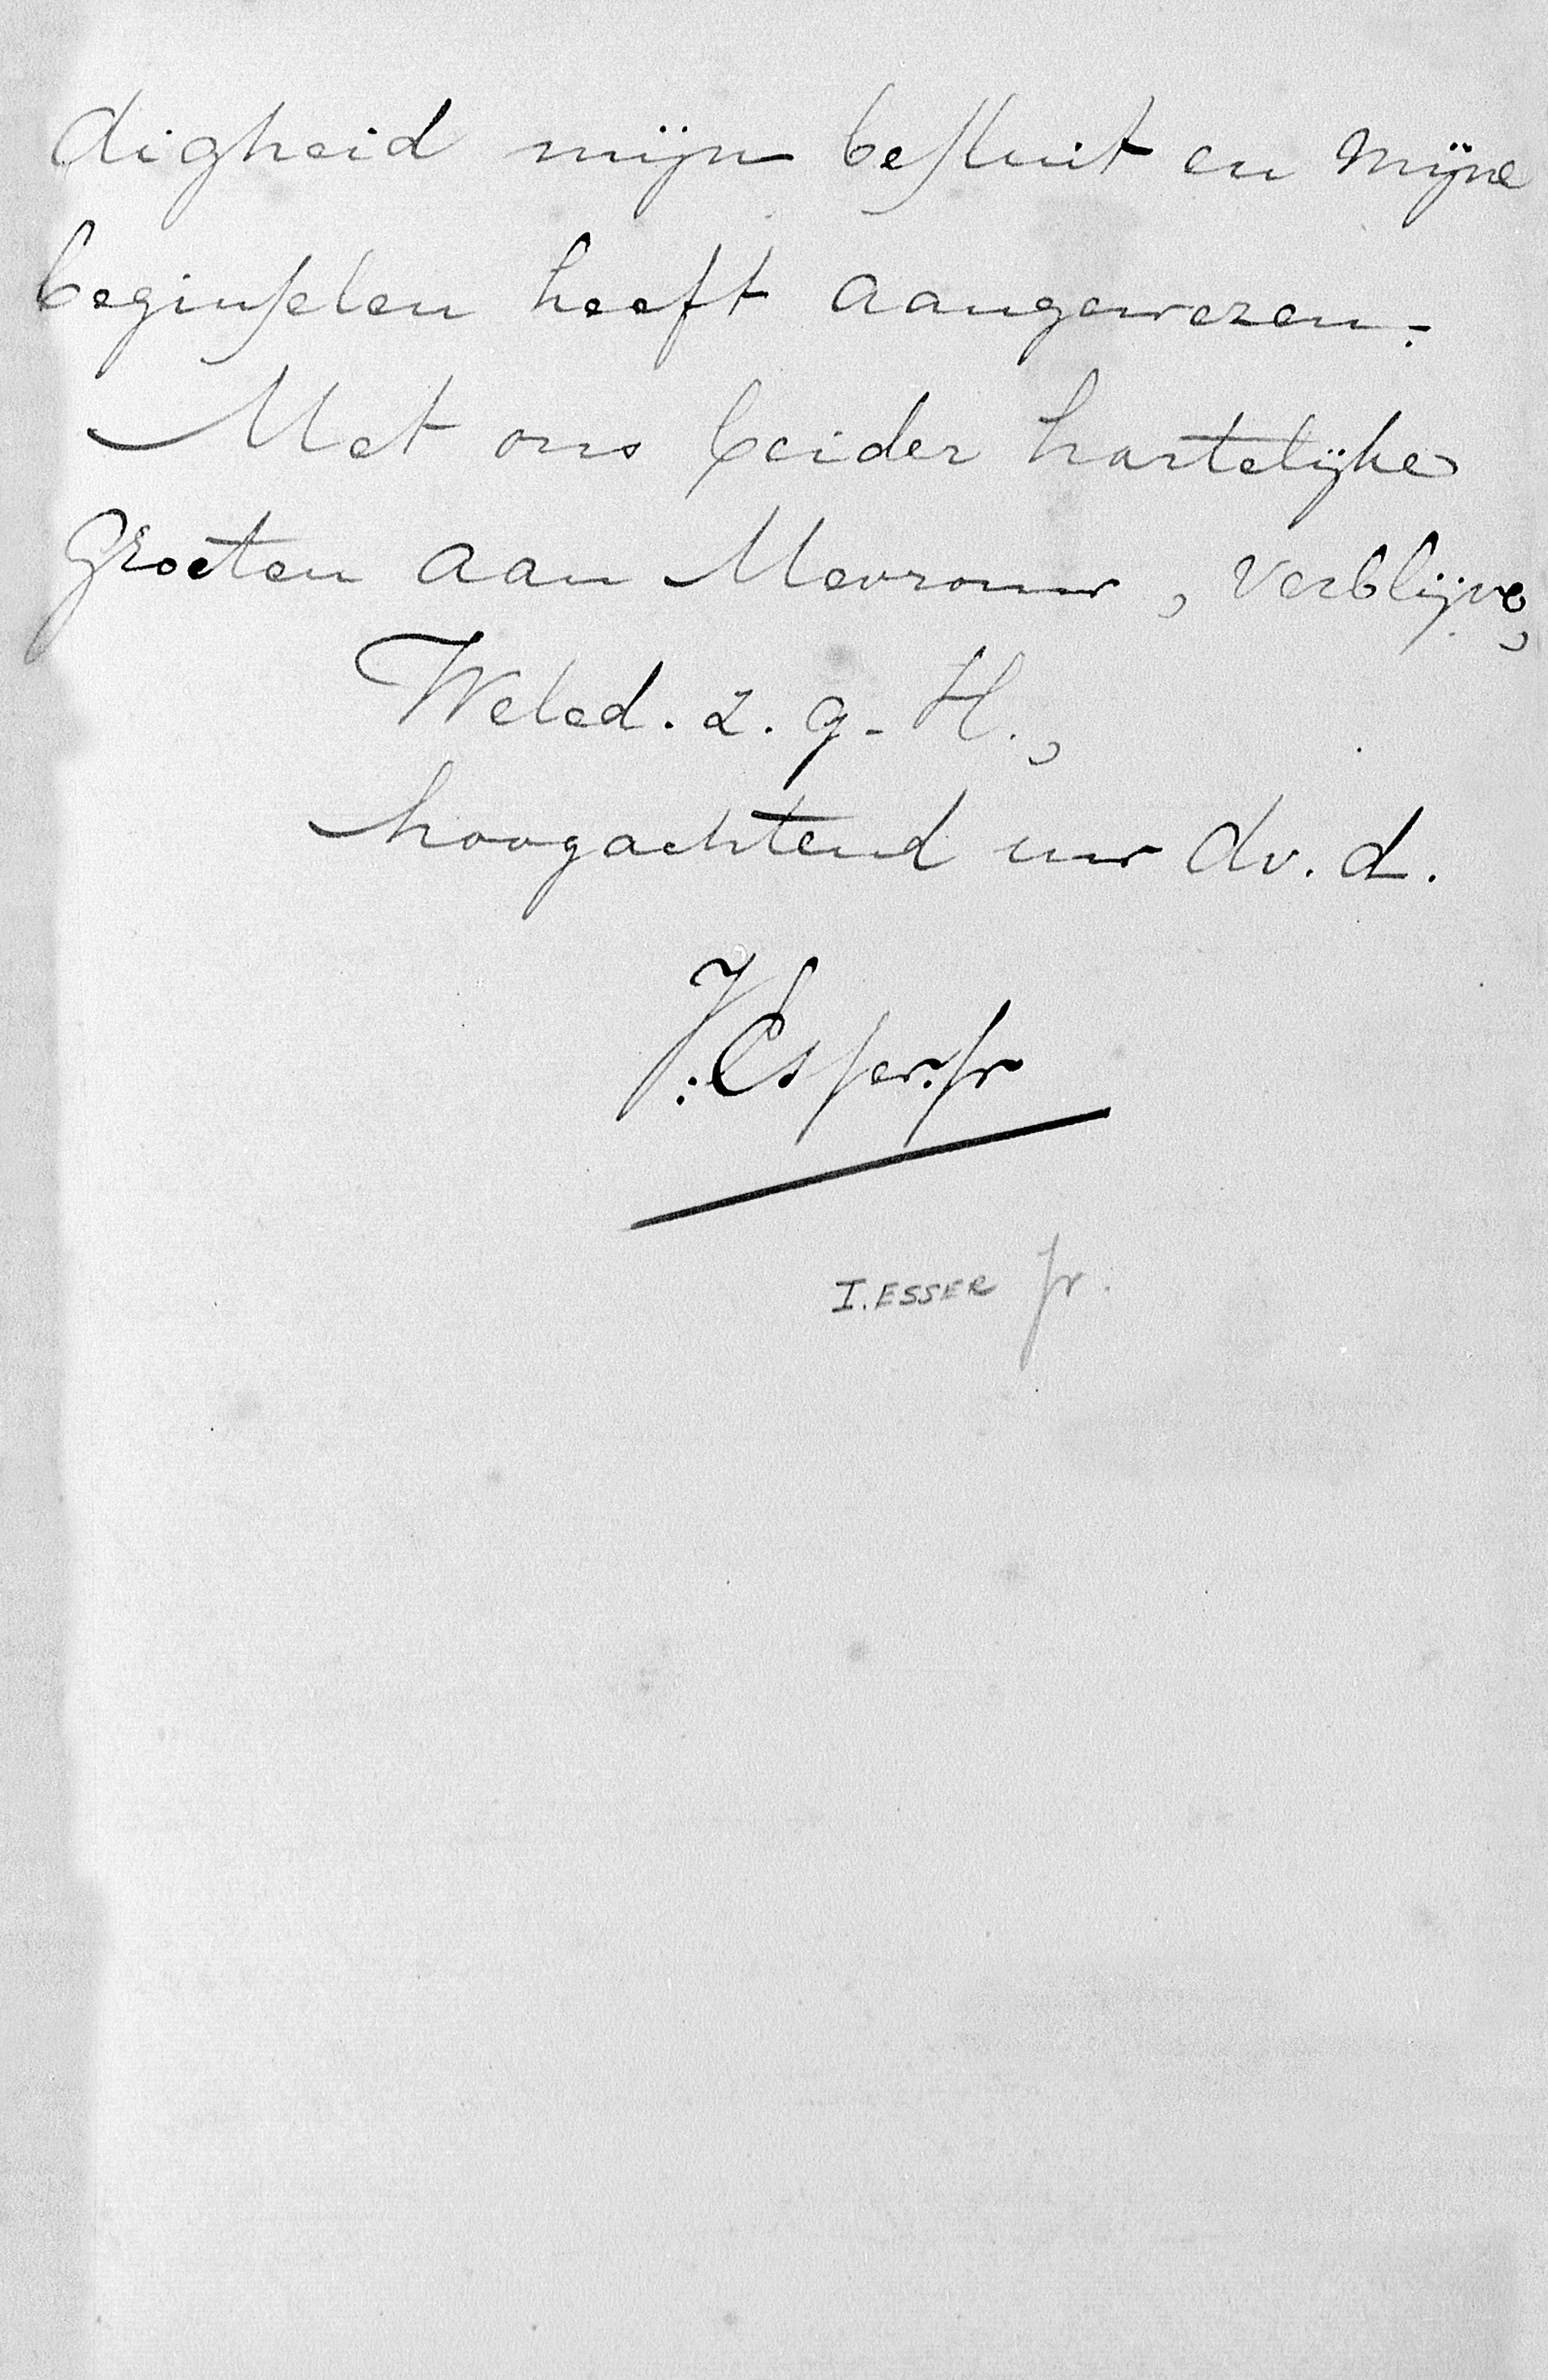 digheid mijn besluit en mijne
beginselen heeft aangewezen.-
Met ons beider hartelijke
groeten aan Mevrouw, verblijve,
Weled. z. g. H.,
hoogachtend uw dv. d.
J. Esser. jr
I. ESSER jr.